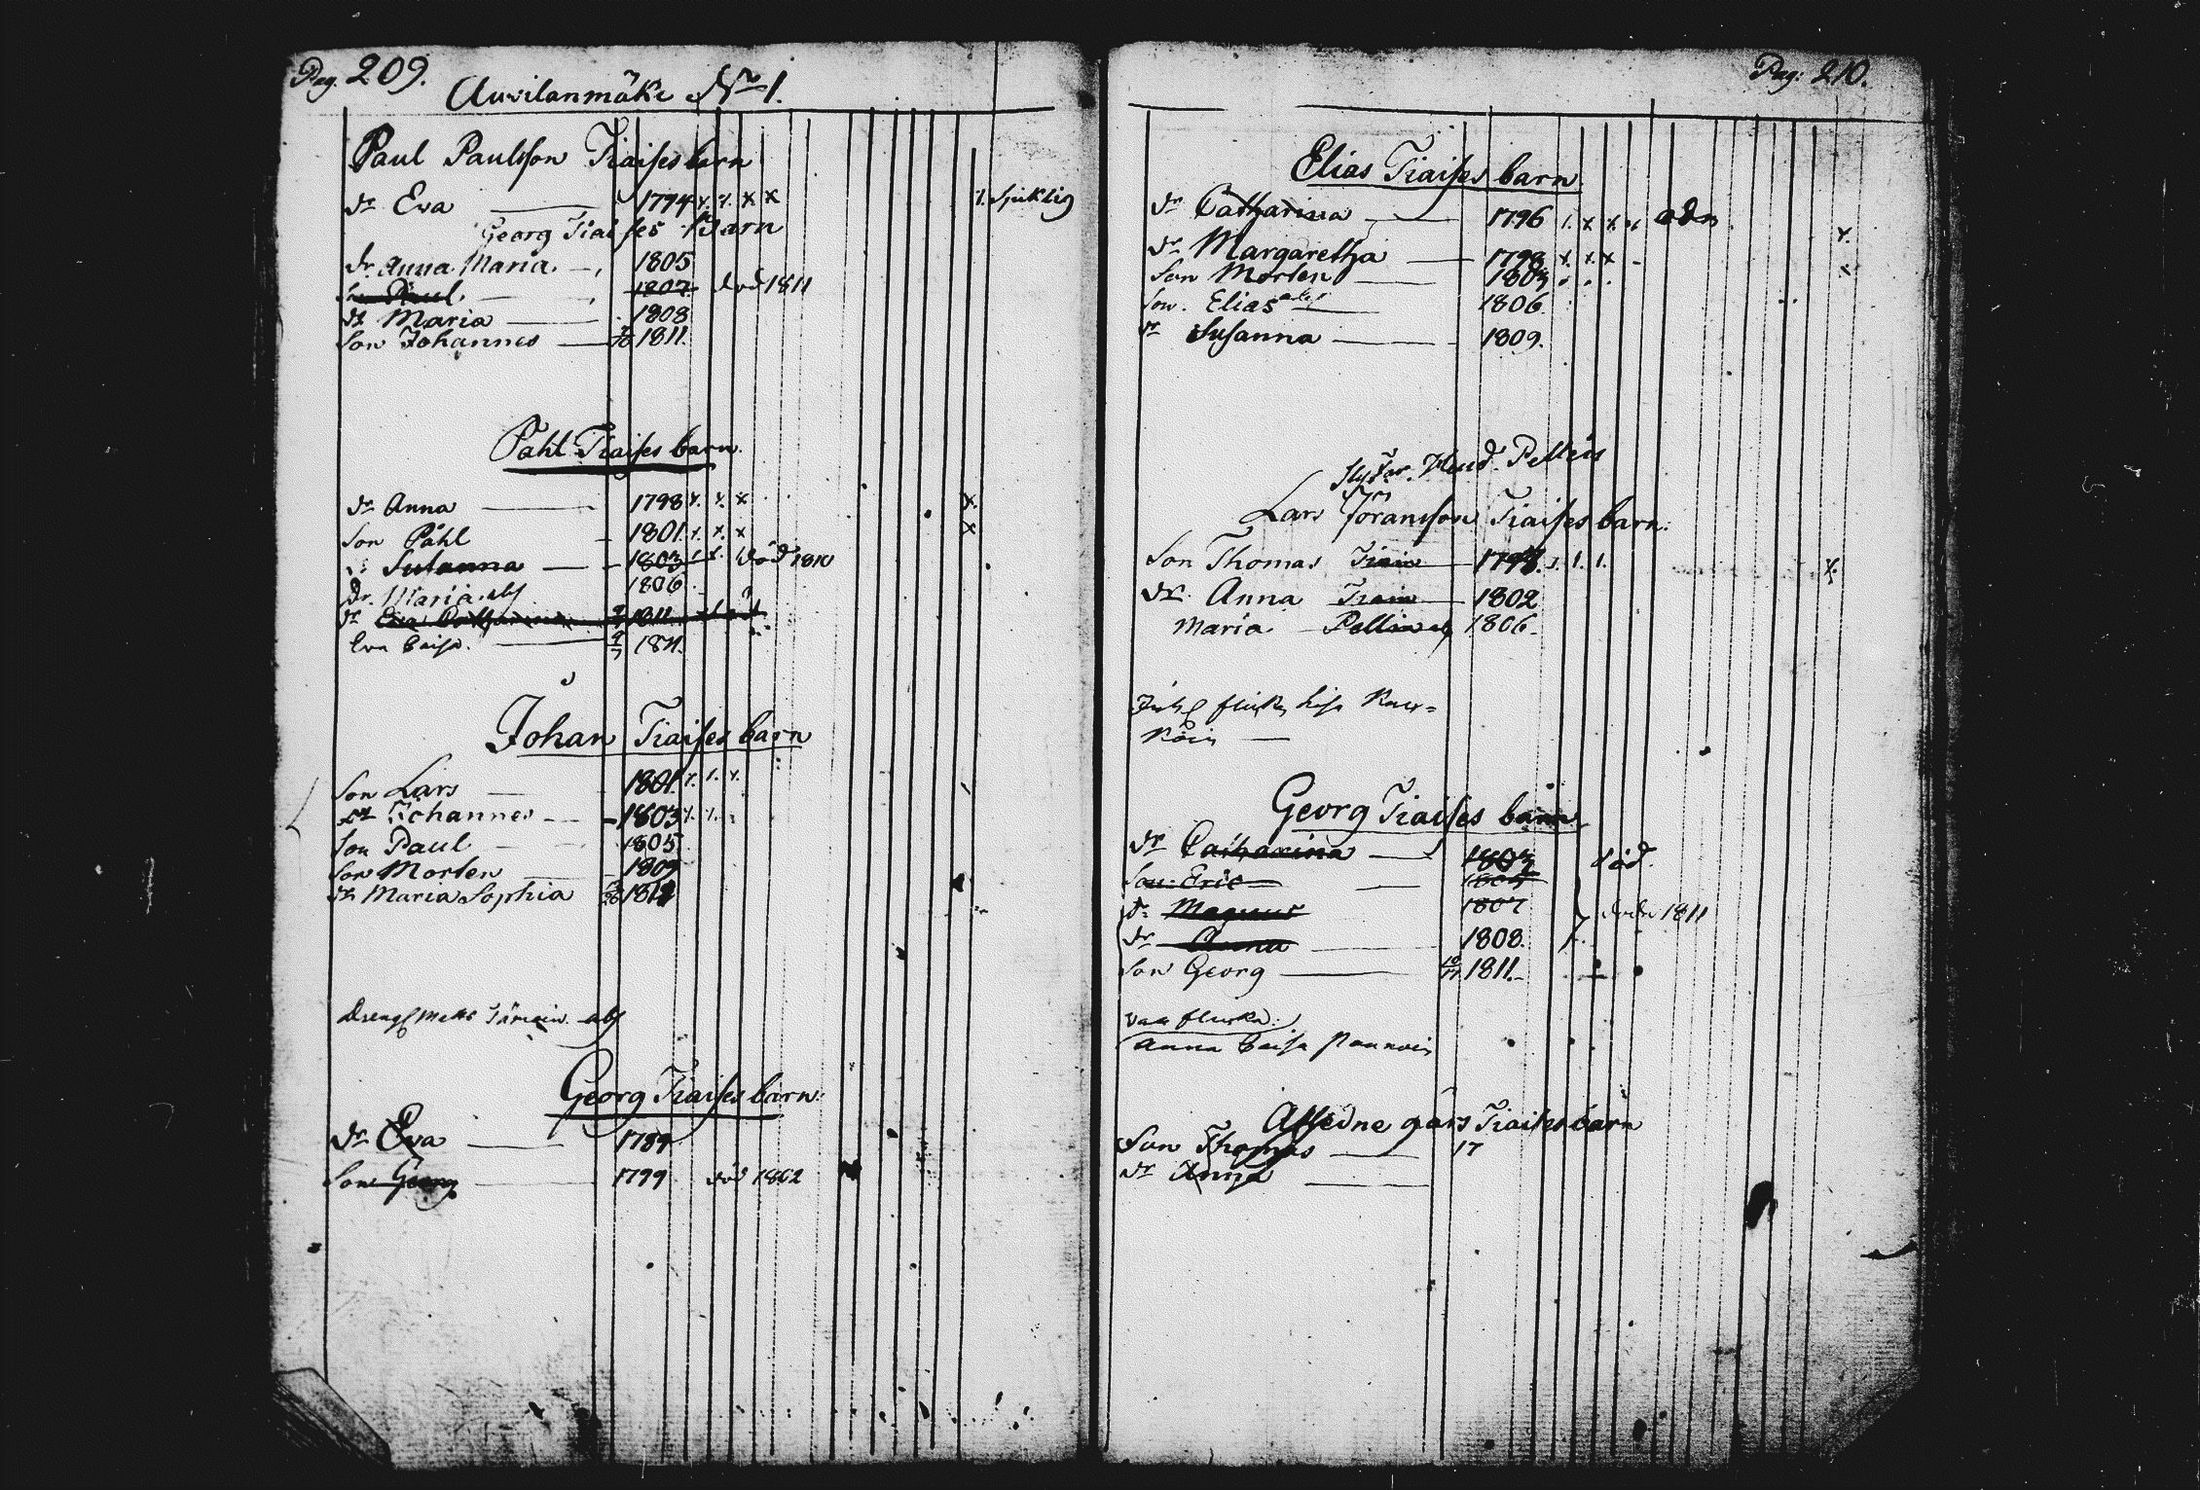 Pag. 209.
Auvilanmäki No 1.
Paul Paulsson Tiaises barn
dr Eva 1794 x. x. x x x. Sjuklig
Georg Tiaises Barn
dr. Anna Maria. 1805
Son Paul 1807. död 1811
dr Maria 1808
Son Johannes 1811.
Påhl Tiaises barn.
dr Anna 1798 x. x. x x.
Son Påhl 1801. x x. x x
dr Susanna 1803 död 1810
Dr. Maria. abs 1806
dr Eva Catharina 1811
Eva Caisa. 1811.
Johan Tiaises barn
Son Lars 1801. x. x. x.
Johannes 1803 x. x.
Son Paul 1805
Son Morten 1809
dr Maria Sophia
Dreng Matts abs
Georg Tiaises barn.
dr Eva 1789
Son Georg 1799 död 1802
Pag: 210.
Elias Tiaises barn
dr Catharina 1796 x. x x x
dr Margaretha 1798 x x x x.
Son Morten 1803 x
Son. Elias 1806.
dr Susanna 1809.
Pellein
Lars Göransson Tiaises barn:
Son Thomas Tiain x.
dr Anna Tiain 1802
Maria 1806.
flickan Lisa
Georg Tiaises barn
dr Catharina 1803 död
Son Eric
Magnus 1807 döda 1811
dr Anna 1808.
Son Georg 1811.
flicka:
Anna Caisa
Afledne Tiaises barn
Son Thomas 17
dr Anna